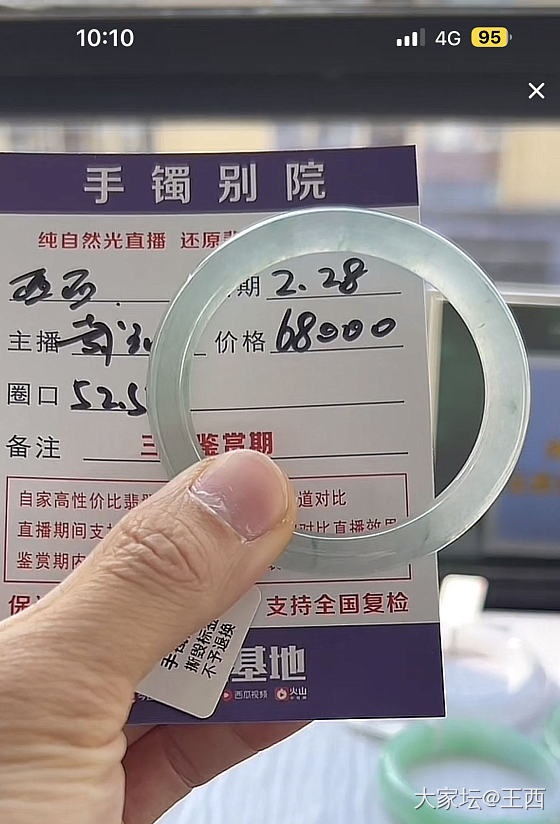 10:10
4G
95
手镯别院
纯自然光直播 还原
西西. 期 2.28
主播 价格 68000
圈口 52.5
备注 三 鉴赏期
自家高性价比翡 道对比
直播期间支 对比直播效果
鉴赏期内
保 支持全国复检
撕毁标签
不予退换
基地
西瓜视频 火山
大家坛@王西